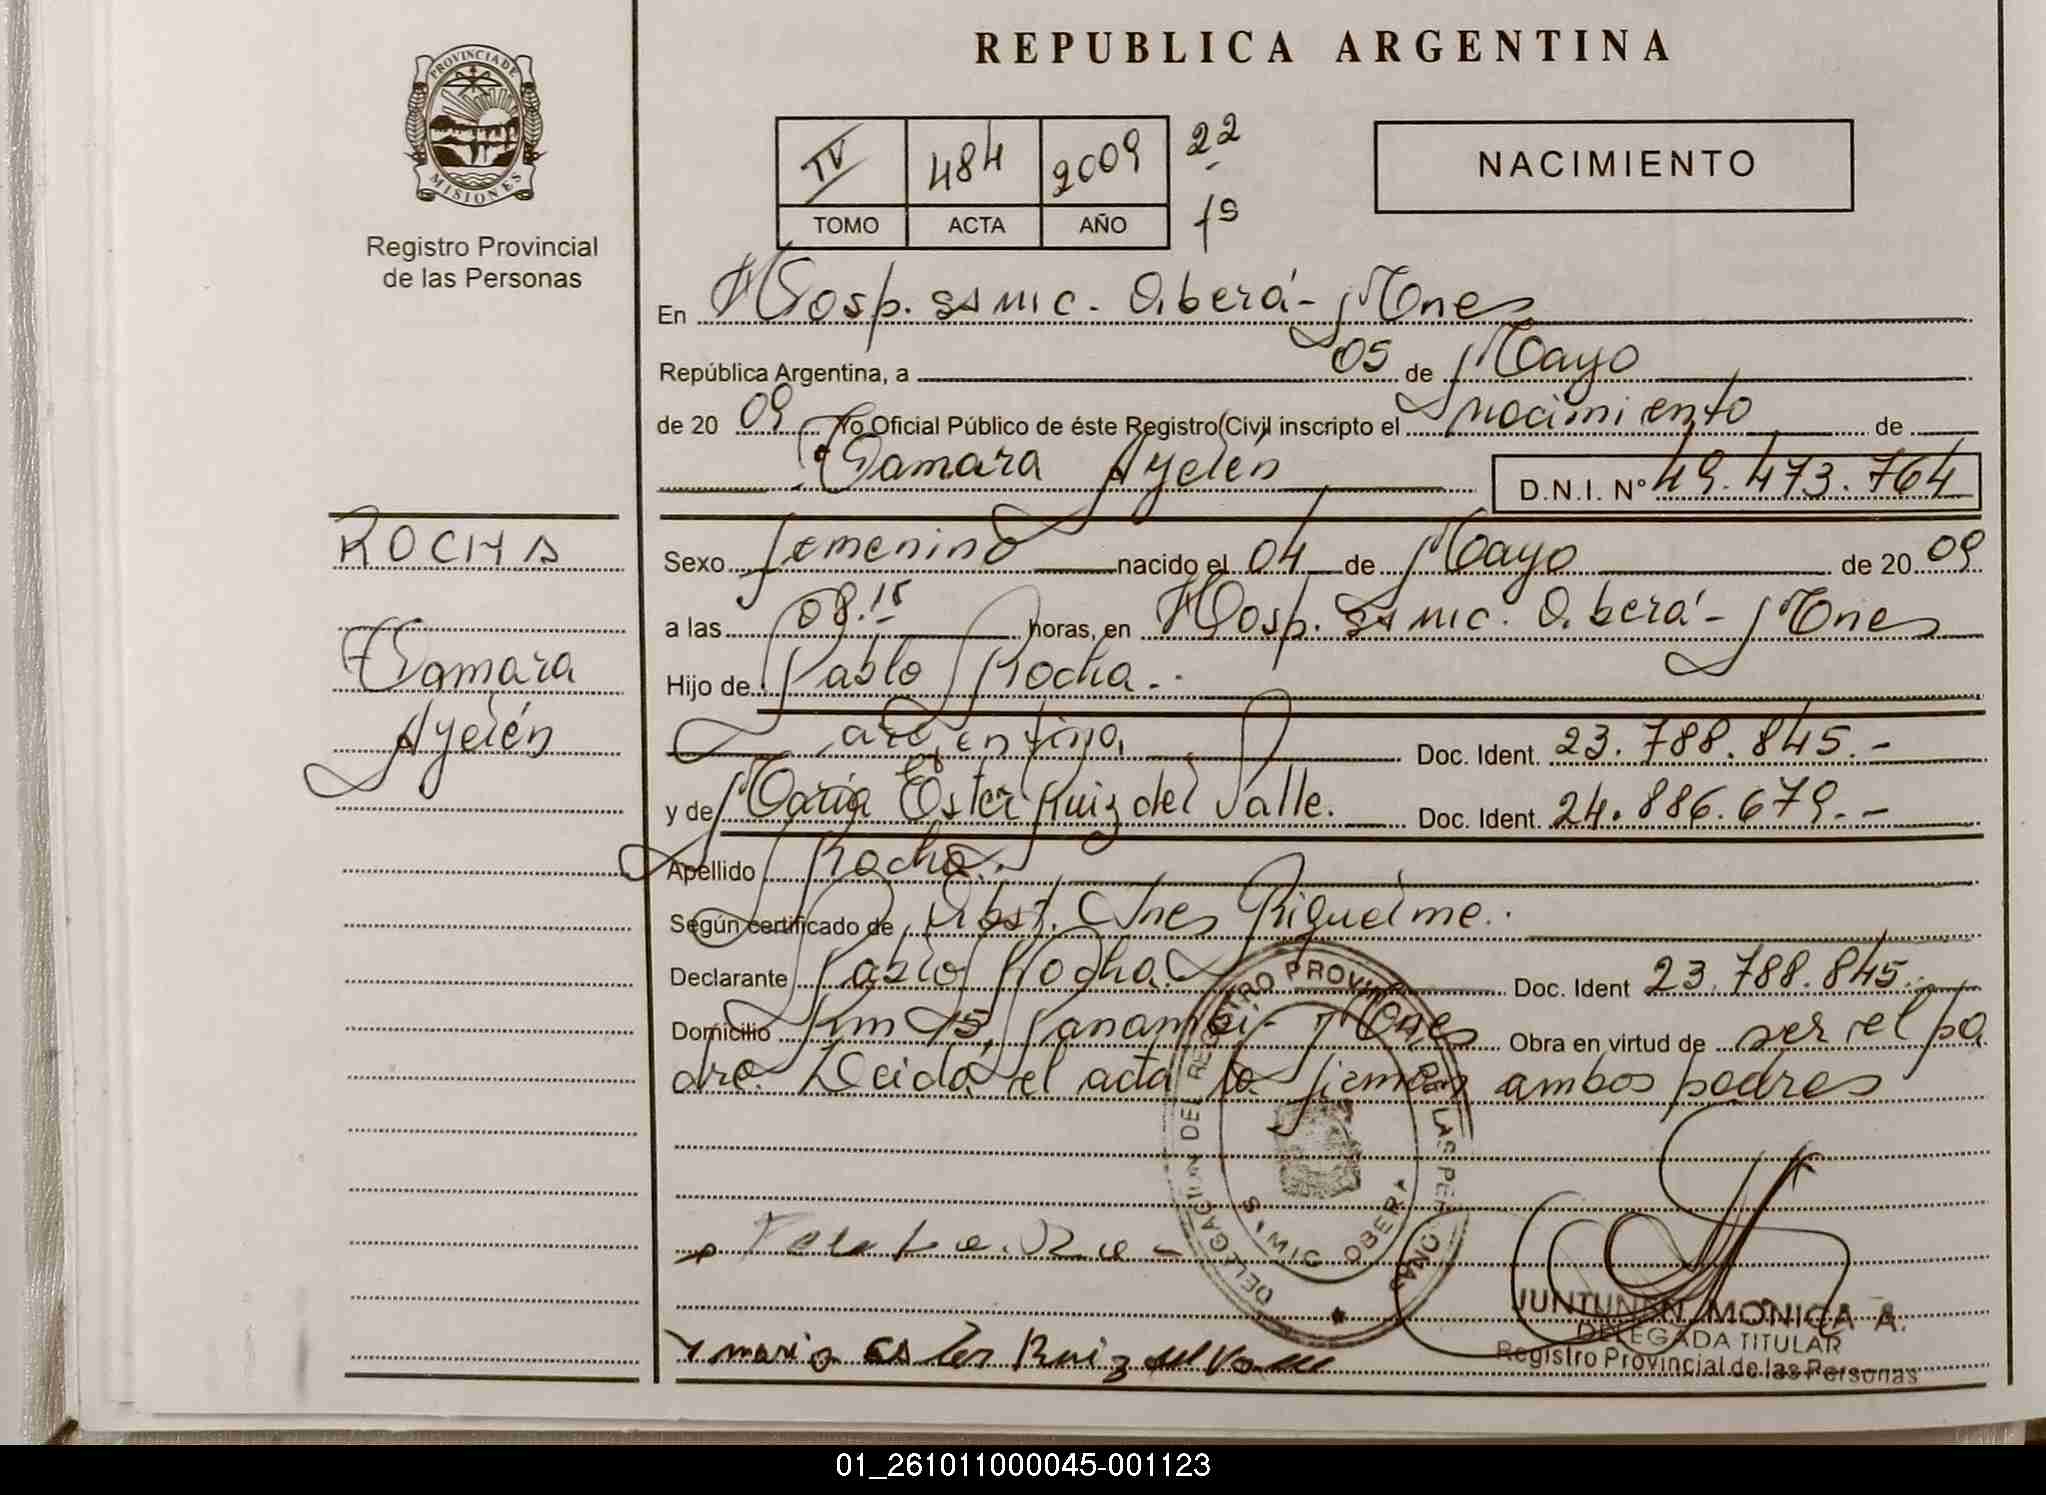 PROVINCIA DE
MISIONES
Registro Provincial
de las Personas
REPUBLICA ARGENTINA
IV 484 2009 22
TOMO ACTA AÑO 1º
NACIMIENTO
En Hosp. SAMIC. Oberá - Mnes
República Argentina, a 05 de Mayo
de 20 09 Yo Oficial Público de éste Registro Civil inscripto el nacimiento de
Tamara Ayelén D.N.I. Nº 49.473.764
ROCHA
Tamara
Ayelén
Sexo femenino nacido el 04 de Mayo de 20 09
a las 08.15 horas, en Hosp. SAMIC. Oberá - Mnes
Hijo de Pablo Rocha.-
argentino, Doc. Ident. 23.788.845.-
y de María Ester Ruiz del Valle. Doc. Ident. 24.886.679.-
Apellido Rocha.-
Según certificado de Obst. Ines Riquelme.-
Declarante Pablo Rocha. Doc. Ident 23.788.845.-
Domicilio Km 15, Panambí - Mnes Obra en virtud de ser el pa
dre. Leída el acta la firman ambos padres
DELEGACION DEL REGISTRO PROVINCIAL DE LAS PERSONAS
OBERA
Maria Ester Ruiz del Valle
JUNTUNEN, MONICA A.
DELEGADA TITULAR
Registro Provincial de las Personas
01_261011000045-001123